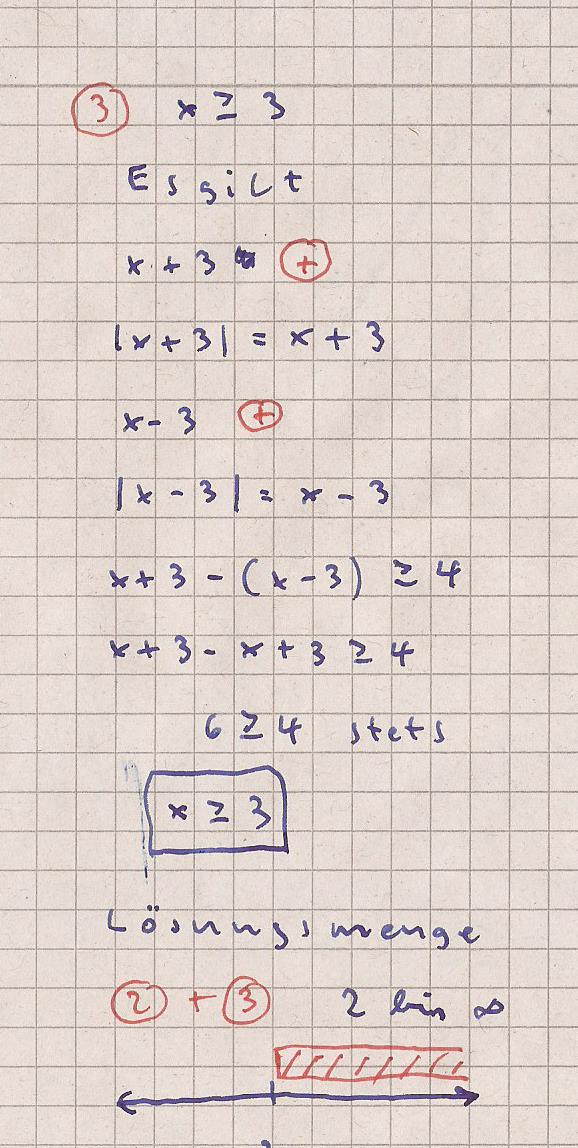 3 x ≥ 3
Es gilt
x + 3 +
|x + 3| = x + 3
x - 3 +
|x - 3| = x - 3
x + 3 - (x - 3) ≥ 4
x + 3 - x + 3 ≥ 4
6 ≥ 4 stets
x ≥ 3
Lösungsmenge
2 + 3 2 bis ∞